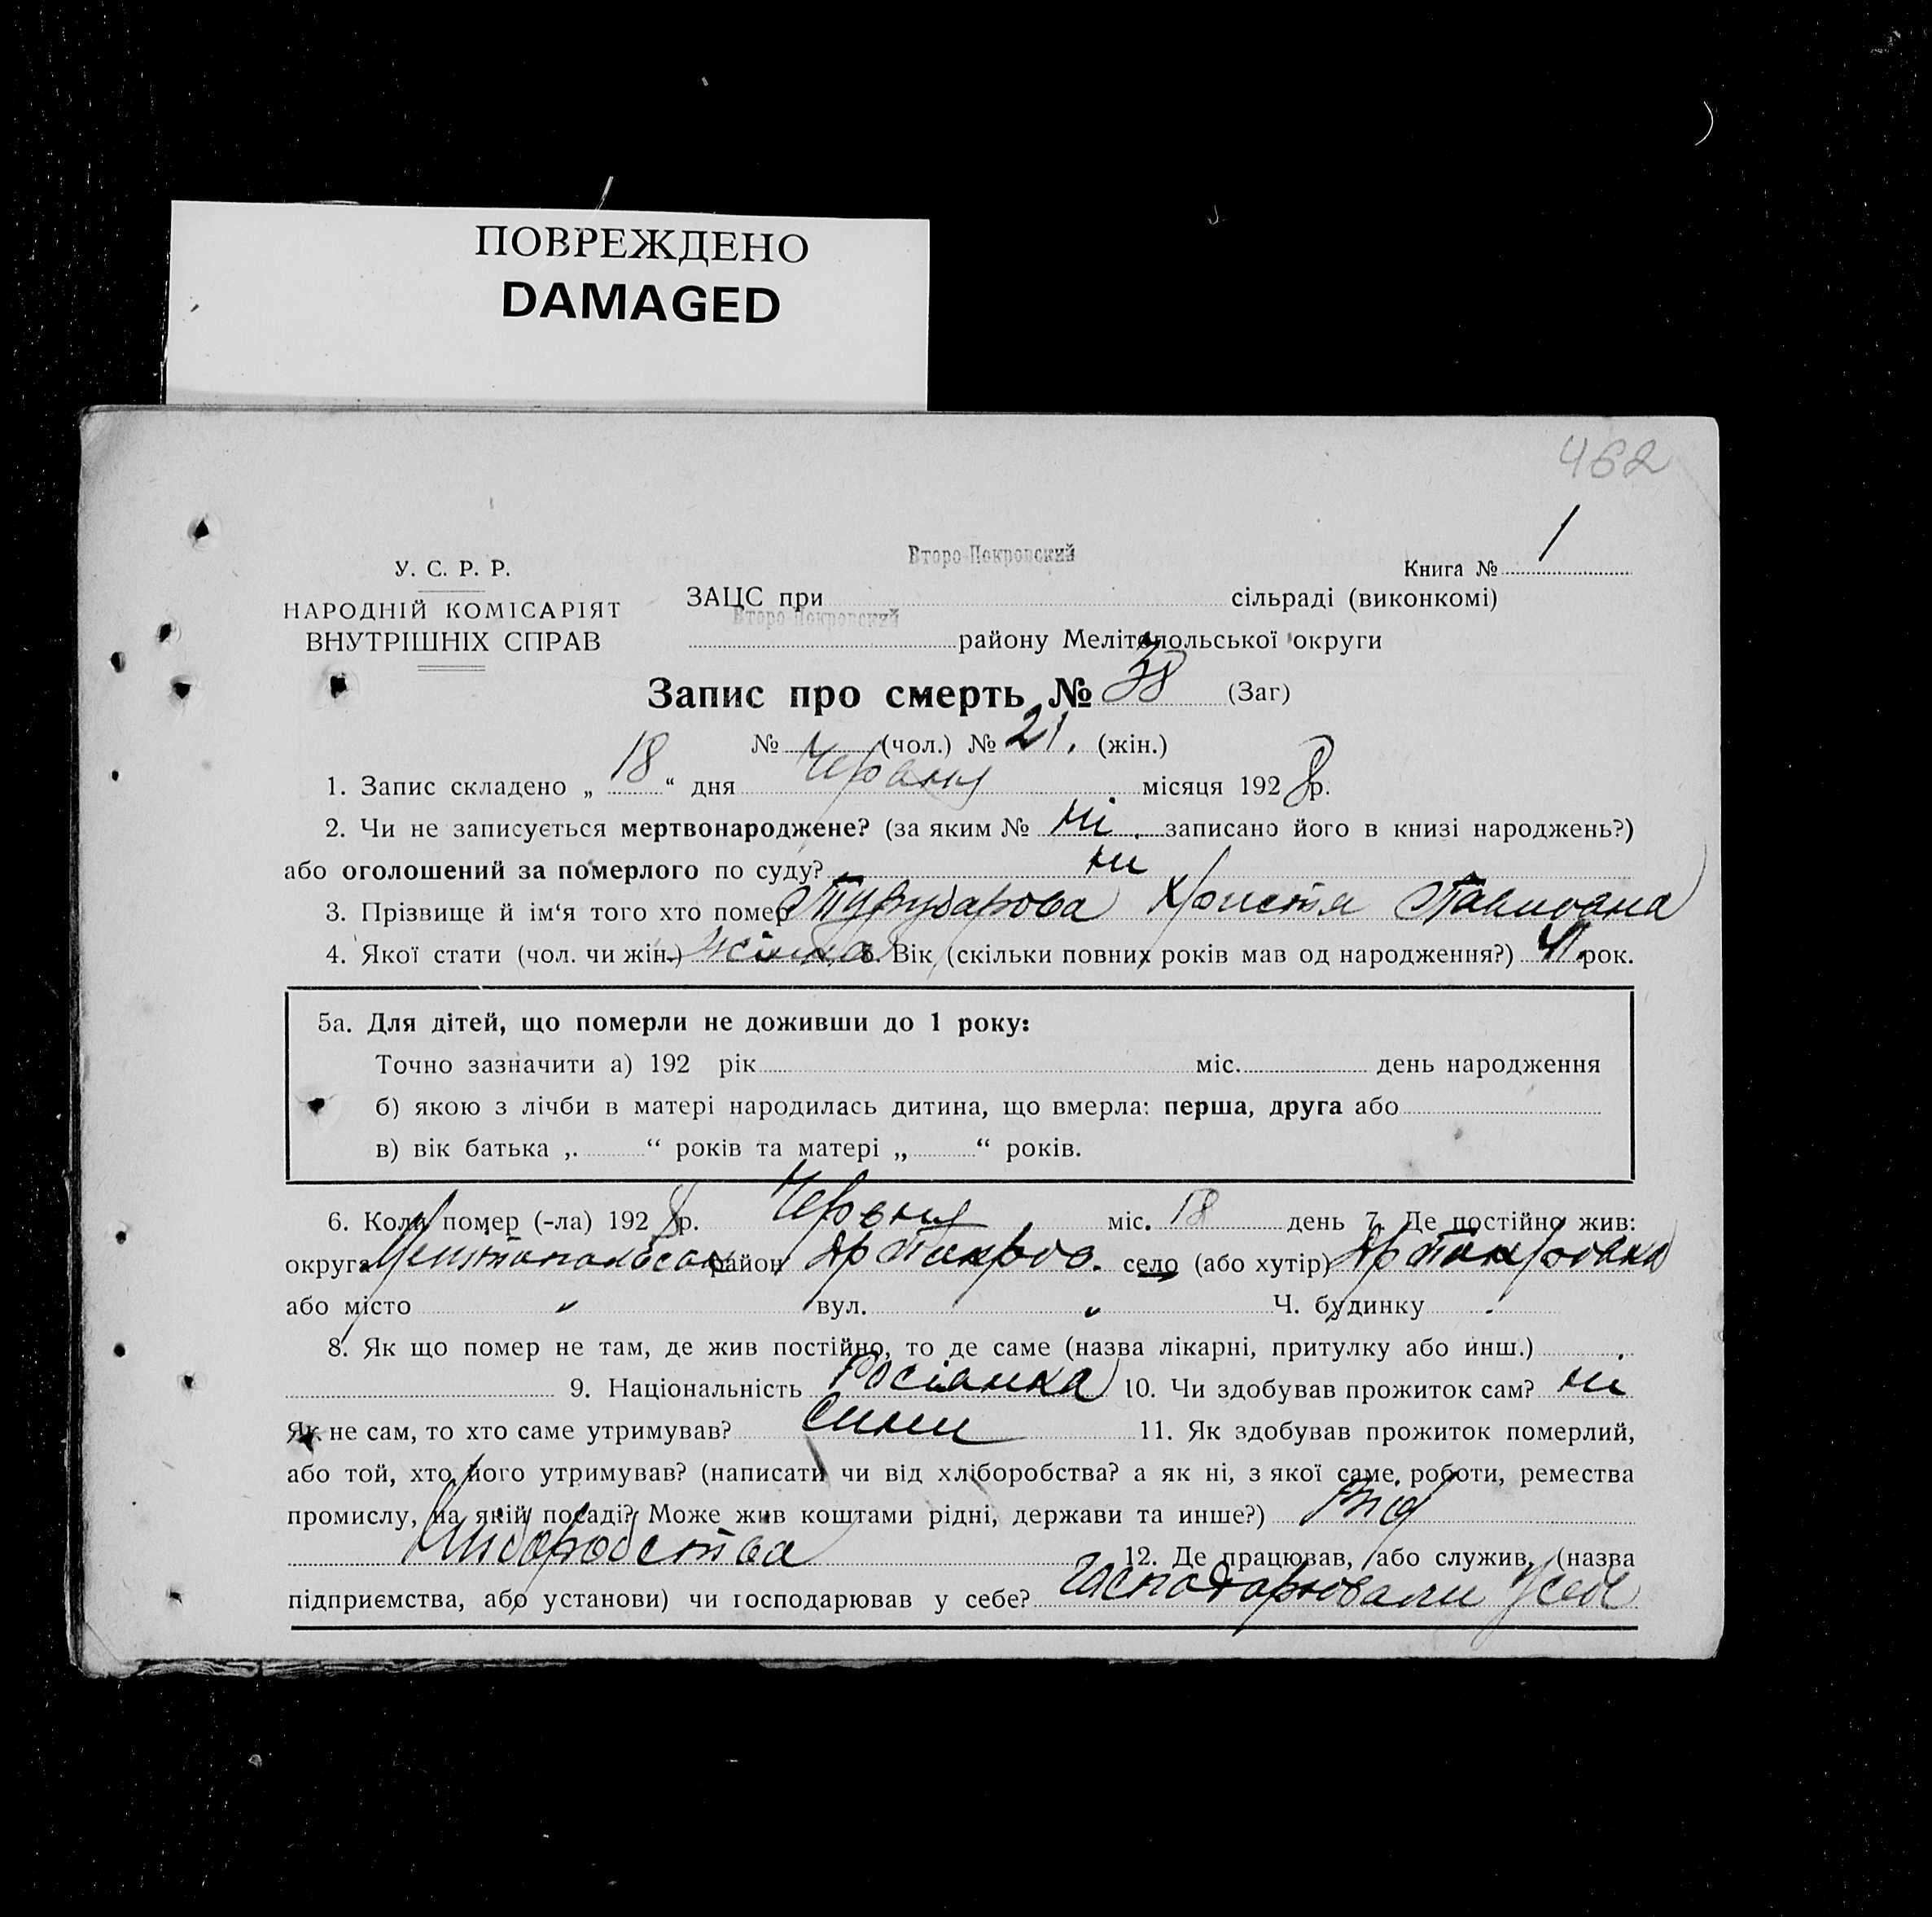 ПОВРЕЖДЕНО
DAMAGED
462
Второ-Покровский
У. С. Р. Р.
Книга № 1
НАРОДНІЙ КОМІСАРІЯТ
ВНУТРІШНІХ СПРАВ
ЗАЦС при сільраді (виконкомі)
Второ-Покровский
району Мелітопольської округи
Запис про смерть № 38 (Заг)
№ (чол.) № 21. (жін.)
1. Запис складено „ 18 “ дня Червня місяця 1928 р.
2. Чи не записується мертвонароджене? (за яким № ні. записано його в книзі народжень?)
або оголошений за померлого по суду? ни
3. Прізвище й ім‘я того хто помер Христя
4. Якої стати (чол. чи жін.) жінка 5. Вік (скільки повних років мав од народження?) рок.
5а. Для дітей, що померли не доживши до 1 року:
Точно зазначити а) 192 рік міс. день народження
б) якою з лічби в матері народилась дитина, що вмерла: перша, друга або
в) вік батька „ “ років та матері „ “ років.
6. Коли помер (-ла) 1928 р. Червня міс. 18 день 7. Де постійно жив:
округа район село (або хутір)
або місто " вул. " Ч. будинку
8. Як що помер не там, де жив постійно, то де саме (назва лікарні, притулку або инш.)
9. Національність Росіянка 10. Чи здобував прожиток сам? ні
Як не сам, то хто саме утримував? сини 11. Як здобував прожиток померлий,
або той, хто його утримував? (написати чи від хліборобства? а як ні, з якої саме роботи, ремества
промислу, на якій посаді? Може жив коштами рідні, держави та инше?) Від
Хліборобства 12. Де працював, або служив, (назва
підприємства, або установи) чи господарював у себе? господарювали у себе